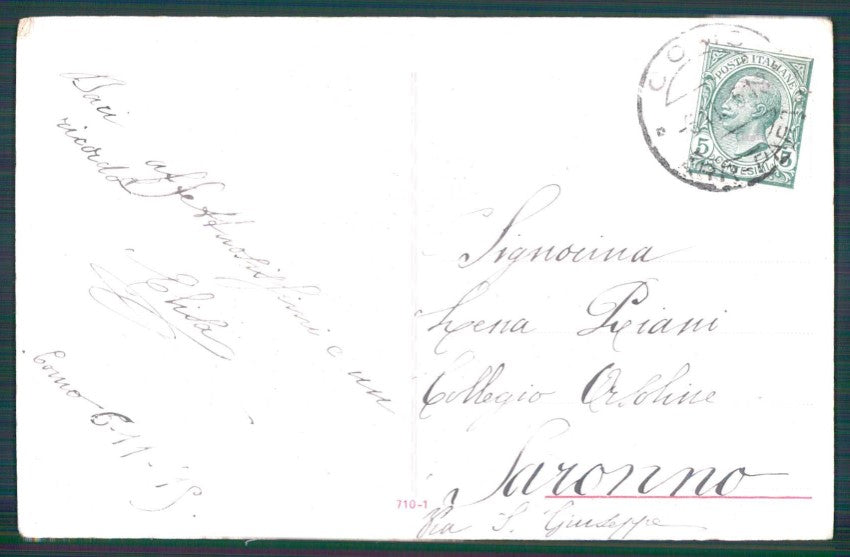 Baci affettuosissimi e un
ricordo
Elisa
Como 6-11-15
COMO
POSTE ITALIANE
5 5
CENTESIMI
Signorina
Lena Riani
Collegio Orsoline
Saronno
Via S. Giuseppe
710-1